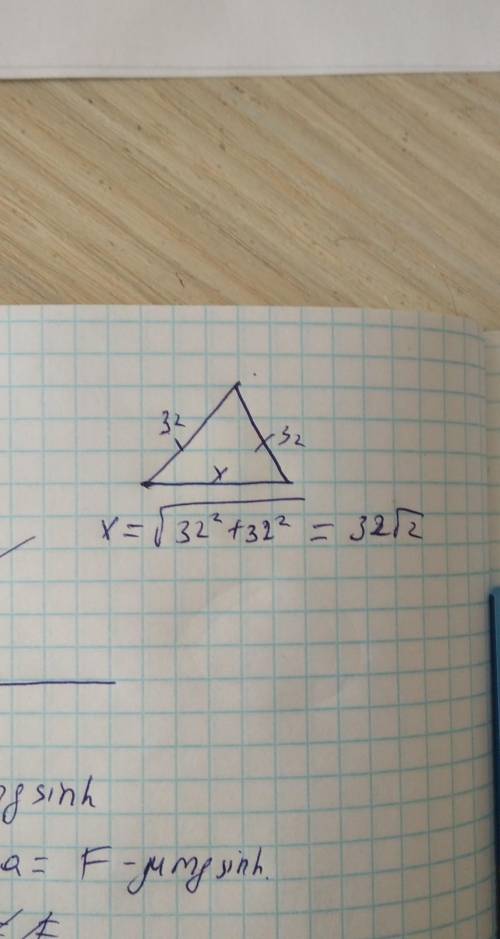 32
32
x
x = √32² + 32² = 32√2
mg sinh
a = F - μmg sinh.